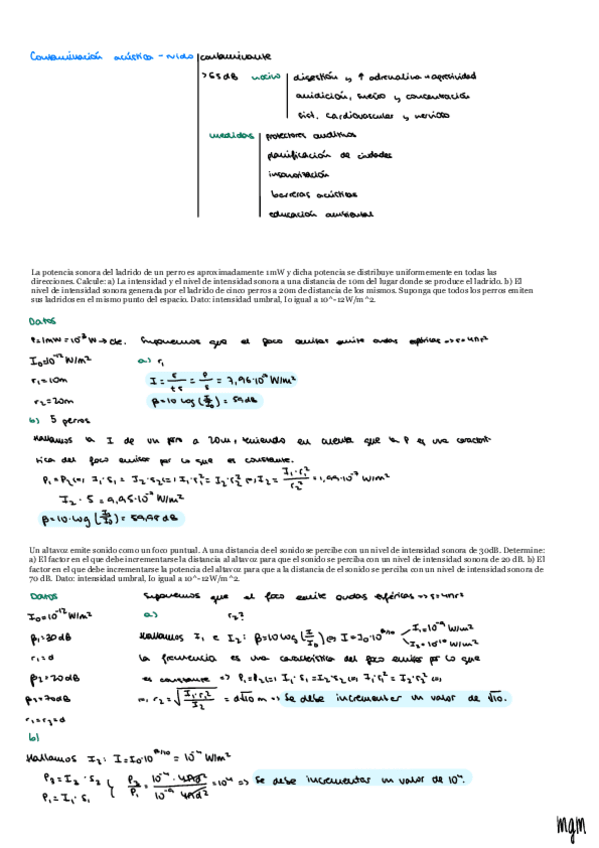 Contaminación acústica - ruido contaminante
>65dB nocivo digestión y ↑ adrenalina → agresividad
audición, sueño y concentración
sist. cardiovascular y nervioso
medidas protectores auditivos
planificación de ciudades
insonorización
barreras acústicas
educación ambiental
La potencia sonora del ladrido de un perro es aproximadamente 1mW y dicha potencia se distribuye uniformemente en todas las
direcciones. Calcule: a) La intensidad y el nivel de intensidad sonora a una distancia de 10m del lugar donde se produce el ladrido. b) El
nivel de intensidad sonora generada por el ladrido de cinco perros a 20m de distancia de los mismos. Suponga que todos los perros emiten
sus ladridos en el mismo punto del espacio. Dato: intensidad umbral, lo igual a 10^-12W/m^2.
Datos
P=1mW=10⁻³W→cte. Suponemos que el foco emisor emite ondas esféricas => S=4πr²
I₀=10⁻¹² W/m² a) r₁
r₁=10m I = E/t·S = P/S = 7,96·10⁻⁷ W/m²
r₂=20m β=10 log (I/I₀) = 59dB
b) 5 perros
Hallamos la I de un perro a 20m, teniendo en cuenta que la P es una caracterís-
tica del foco emisor por lo que es constante.
P₁=P₂ <=> I₁·S₁ = I₂·S₂ <=> I₁·r₁² = I₂·r₂² <=> I₂ = I₁·r₁²/r₂² = 1,99·10⁻⁷ W/m²
I₂ · 5 = 9,95·10⁻⁷ W/m²
β=10·log (I₂/I₀) = 59,98 dB
Un altavoz emite sonido como un foco puntual. A una distancia de el sonido se percibe con un nivel de intensidad sonora de 30dB. Determine:
a) El factor en el que debe incrementarse la distancia al altavoz para que el sonido se perciba con un nivel de intensidad sonora de 20 dB. b) El
factor en el que debe incrementarse la potencia del altavoz para que a la distancia de el sonido se perciba con un nivel de intensidad sonora de
70 dB. Dato: intensidad umbral, lo igual a 10^-12W/m^2.
Datos Suponemos que el foco emite ondas esféricas => S=4πr²
I₀=10⁻¹² W/m² a) r₂?
β₁=30dB Hallamos I₁ e I₂: β=10 log (I/I₀) <=> I=I₀·10^β/10 I₁=10⁻⁹ W/m² I₂=10⁻¹⁰ W/m²
r₁=d La frecuencia es una característica del foco emisor por lo que
β₂=20dB es constante => P₁=P₂ <=> I₁·S₁=I₂·S₂ <=> I₁·r₁² = I₂·r₂² <=>
β₃=70dB <=> r₂ = √(I₁·r₁²/I₂) = d√10 m => Se debe incrementar un valor de √10.
r₁=r₃=d
b)
Hallamos I₃: I=I₀·10^β/10 = 10⁻⁵ W/m²
P₃=I₃·S₃ P₃/P₁ = 10⁻⁵·4πd²/10⁻⁹·4πd² = 10⁴ => Se debe incrementar un valor de 10⁴.
P₁=I₁·S₁
mgm